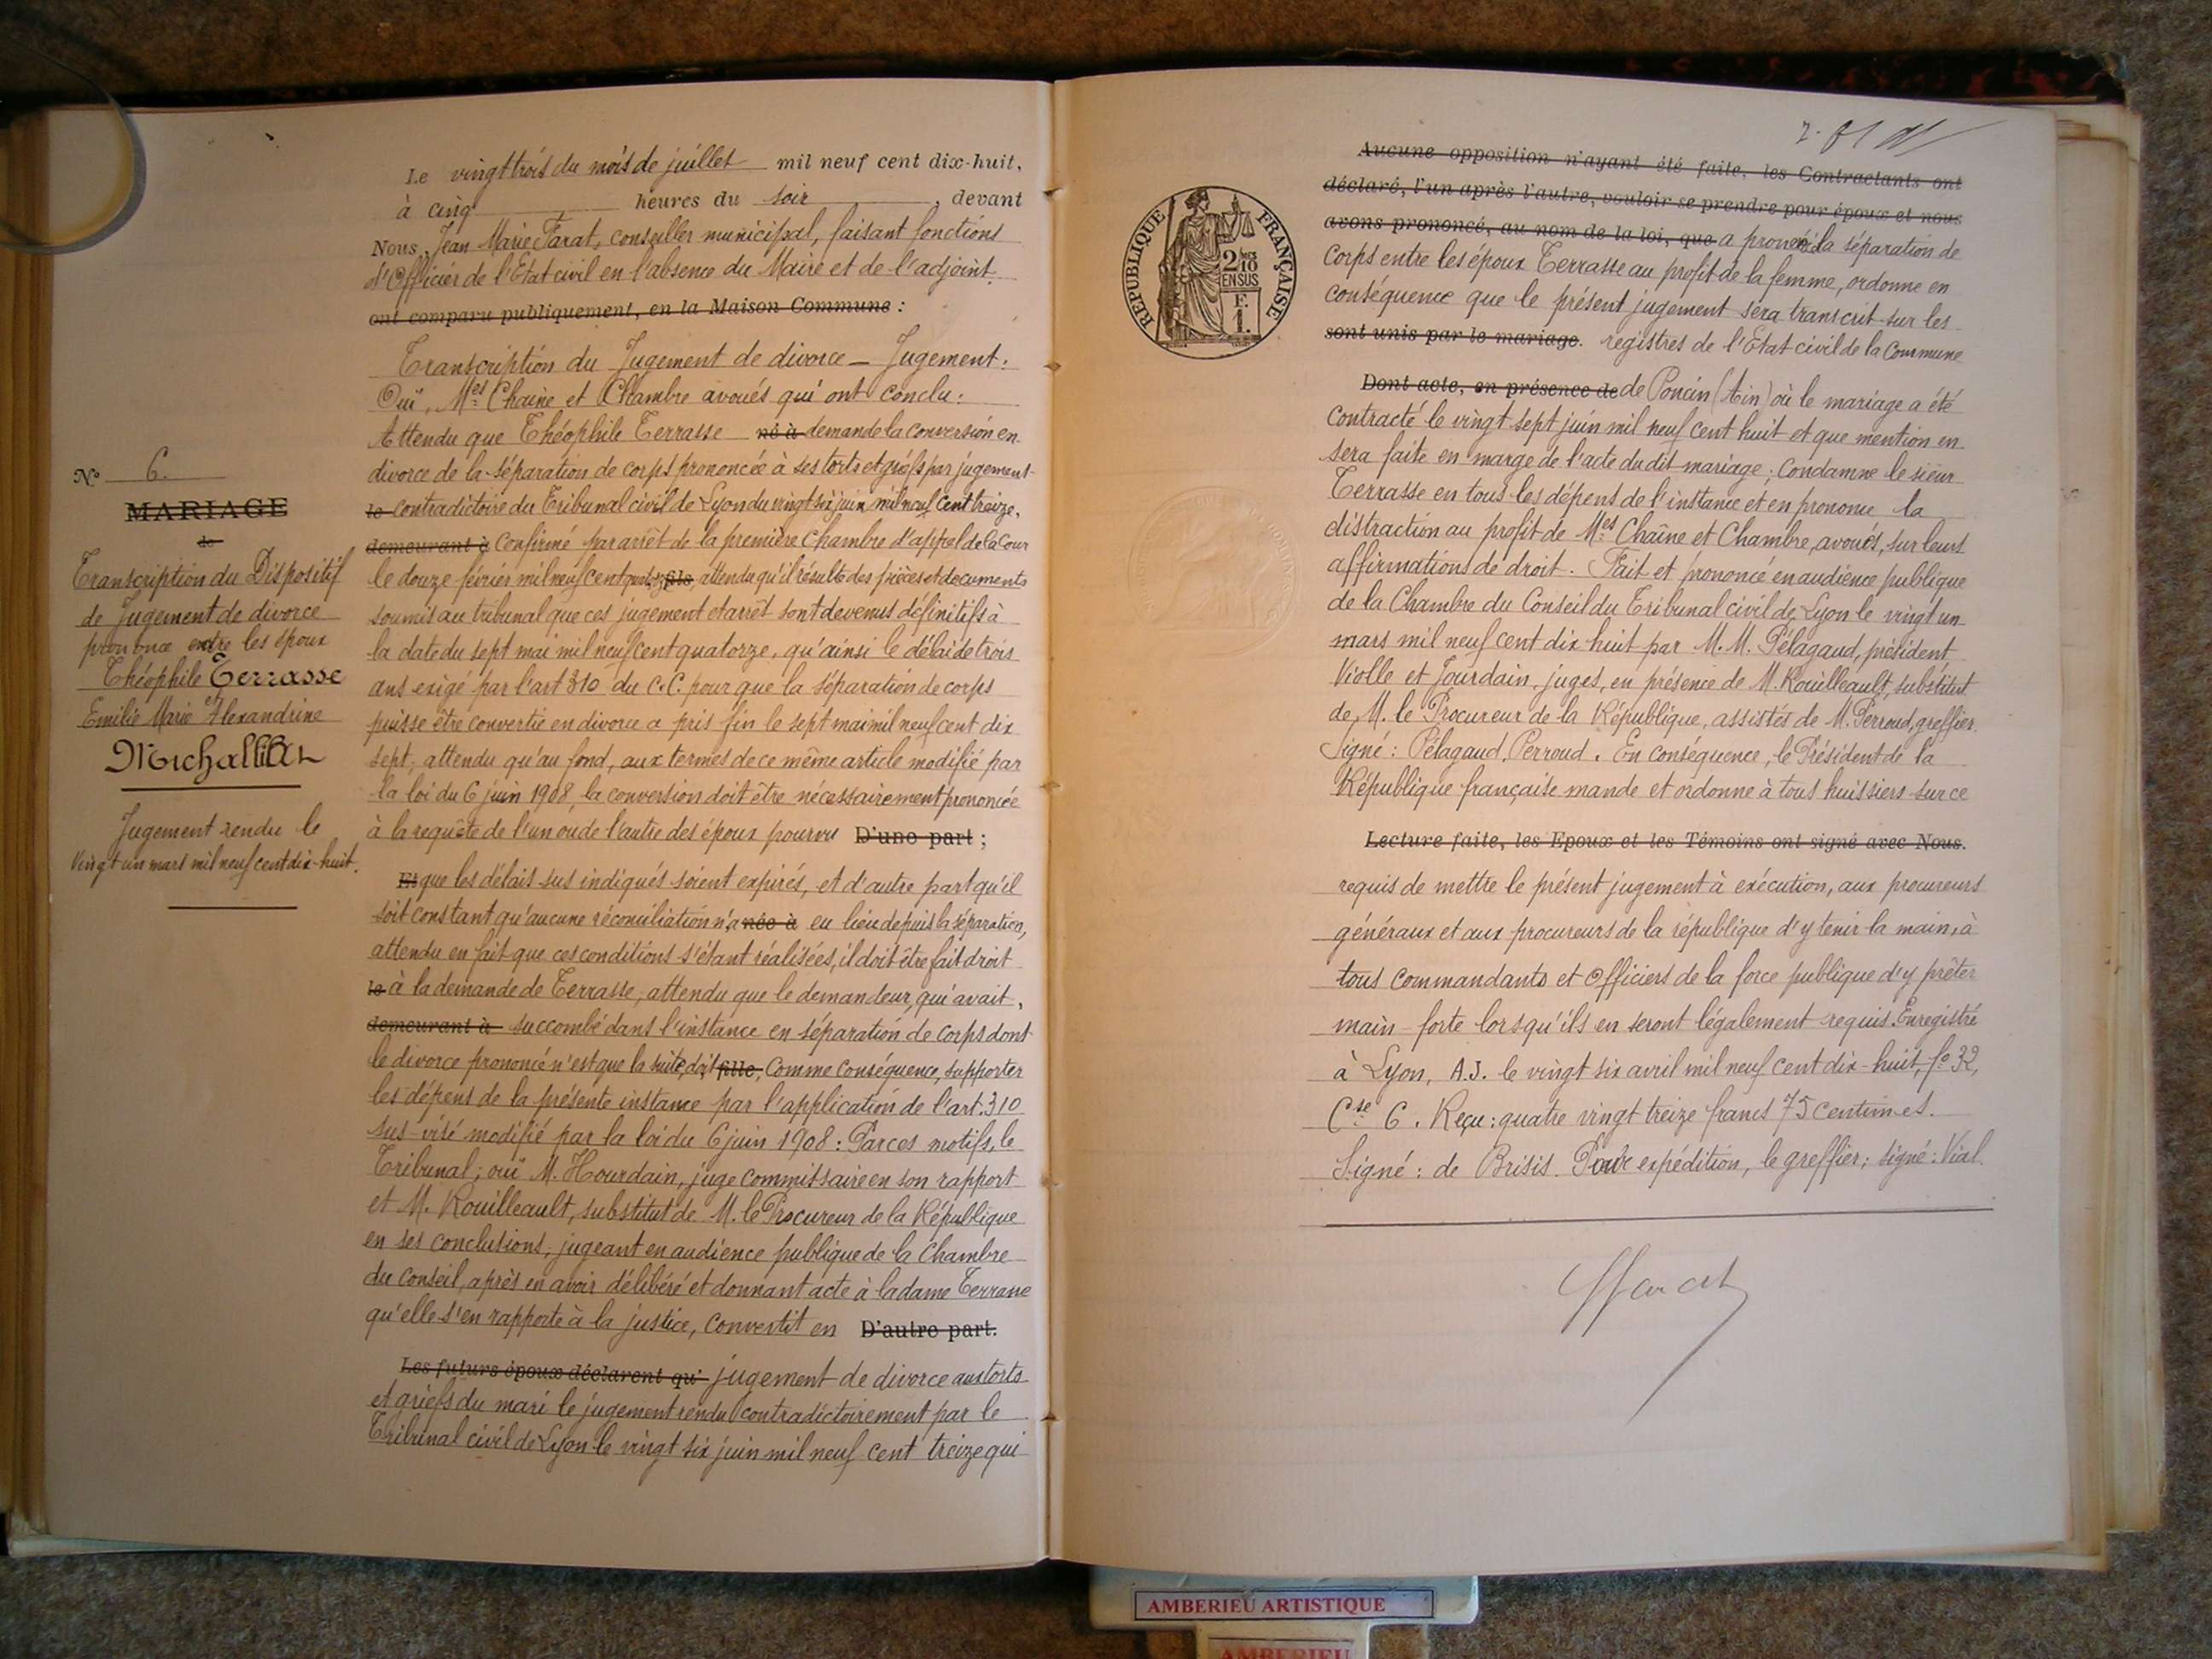 Le vingt trois du mois de juillet mil neuf cent dix-huit,
à cinq heures du soir, devant
Nous, Jean Marie Farat, conseiller municipal, faisant fonctions
d'Officier de l'Etat civil en l'absence du Maire et de l'adjoint.
ont comparu publiquement, en la Maison Commune :
Transcription du Jugement de divorce – Jugement :
Ouï, Mes Chaine et Chambre avoués qui ont conclu :
Attendu que Théophile Terrasse né à demande la conversion en
divorce de la séparation de corps prononcée à ses torts et griefs par jugement
le contradictoire du Tribunal civil de Lyon du vingt six juin mil neuf cent treize,
demeurant à Confirmé par arrêt de la première Chambre d'appel de la Cour
le douze février mil neuf cent quatorze, fils, attendu qu'il résulte des pièces et documents
soumis au tribunal que ces jugement et arrêt sont devenus définitifs à
la date du sept mai mil neuf cent quatorze, qu'ainsi le délai de trois
ans exigé par l'art 310 du C.C. pour que la séparation de corps
puisse être convertie en divorce a pris fin le sept mai mil neuf cent dix
sept, attendu qu'au fond, aux termes de ce même article modifié par
la loi du 6 juin 1908, la conversion doit être nécessairement prononcée
à la requête de l'un ou de l'autre des époux pourvu D'une part ;
Et que les délais sus indiqués soient expirés, et d'autre part qu'il
soit constant qu'aucune réconciliation n'a née à eu lieu depuis la séparation,
attendu en fait que ces conditions s'étant réalisées, il doit être fait droit
le à la demande de Terrasse, attendu que le demandeur, qui avait,
demeurant à succombé dans l'instance en séparation de corps dont
le divorce prononcé n'est que la suite, doit fille, comme conséquence, supporter
les dépens de la présente instance par l'application de l'art. 310
sus-visé modifié par la loi du 6 juin 1908 : Par ces motifs, le
Tribunal ; ouï M. Hourdain, juge commissaire en son rapport
et M. Rouilleault, substitut de M. le Procureur de la République
en ses conclusions, jugeant en audience publique de la Chambre
du conseil, après en avoir délibéré et donnant acte à la dame Terrasse
qu'elle s'en rapporte à la justice, convertit en D'autre part.
Les futurs époux déclarent qu' jugement de divorce aux torts
et griefs du mari le jugement rendu contradictoirement par le
Tribunal civil de Lyon le vingt six juin mil neuf cent treize qui
N° 6.
MARIAGE
de
Transcription du Dispositif
de Jugement de divorce
prononcé entre les époux
Théophile Terrasse
Emilie Marie Alexandrine
Michallet
Jugement rendu le
Vingt un mars mil neuf cent dix-huit.
RÉPUBLIQUE FRANÇAISE
2/10
EN SUS
F.
1.
Aucune opposition n'ayant été faite, les Contractants ont
déclaré, l'un après l'autre, vouloir se prendre pour époux et nous
avons prononcé, au nom de la loi, que a prononcé la séparation de
Corps entre les époux Terrasse au profit de la femme, ordonne en
conséquence que le présent jugement sera transcrit sur les
sont unis par le mariage. registres de l'Etat civil de la Commune
Dont acte, en présence de de Poncin (Ain) où le mariage a été
contracté le vingt sept juin mil neuf cent huit et que mention en
sera faite en marge de l'acte du dit mariage ; Condamne le sieur
Terrasse en tous les dépens de l'instance et en prononce la
distraction au profit de Mes Chaîne et Chambre, avoués, sur leurs
affirmations de droit. Fait et prononcé en audience publique
de la Chambre du Conseil du Tribunal civil de Lyon le vingt un
mars mil neuf cent dix huit par M. M. Pélagaud, président
Violle et Jourdain, juges, en présence de M. Rouilleault, substitut
de M. le Procureur de la République, assistés de M. Perroud, greffier.
Signé : Pélagaud, Perroud. En conséquence, le Président de la
République française mande et ordonne à tous huissiers sur ce
Lecture faite, les Epoux et les Témoins ont signé avec Nous.
requis de mettre le présent jugement à exécution, aux procureurs
généraux et aux procureurs de la république d'y tenir la main, à
tous commandants et Officiers de la force publique d'y prêter
main-forte lorsqu'ils en seront légalement requis. Enregistré
à Lyon, A.J. le vingt six avril mil neuf cent dix-huit, f° 32,
Cse 6. Reçu : quatre vingt treize francs 75 centimes.
Signé : de Brisis. Pour expédition, le greffier ; signé : Vial.
Farat
AMBERIEU ARTISTIQUE
AMBERIEU